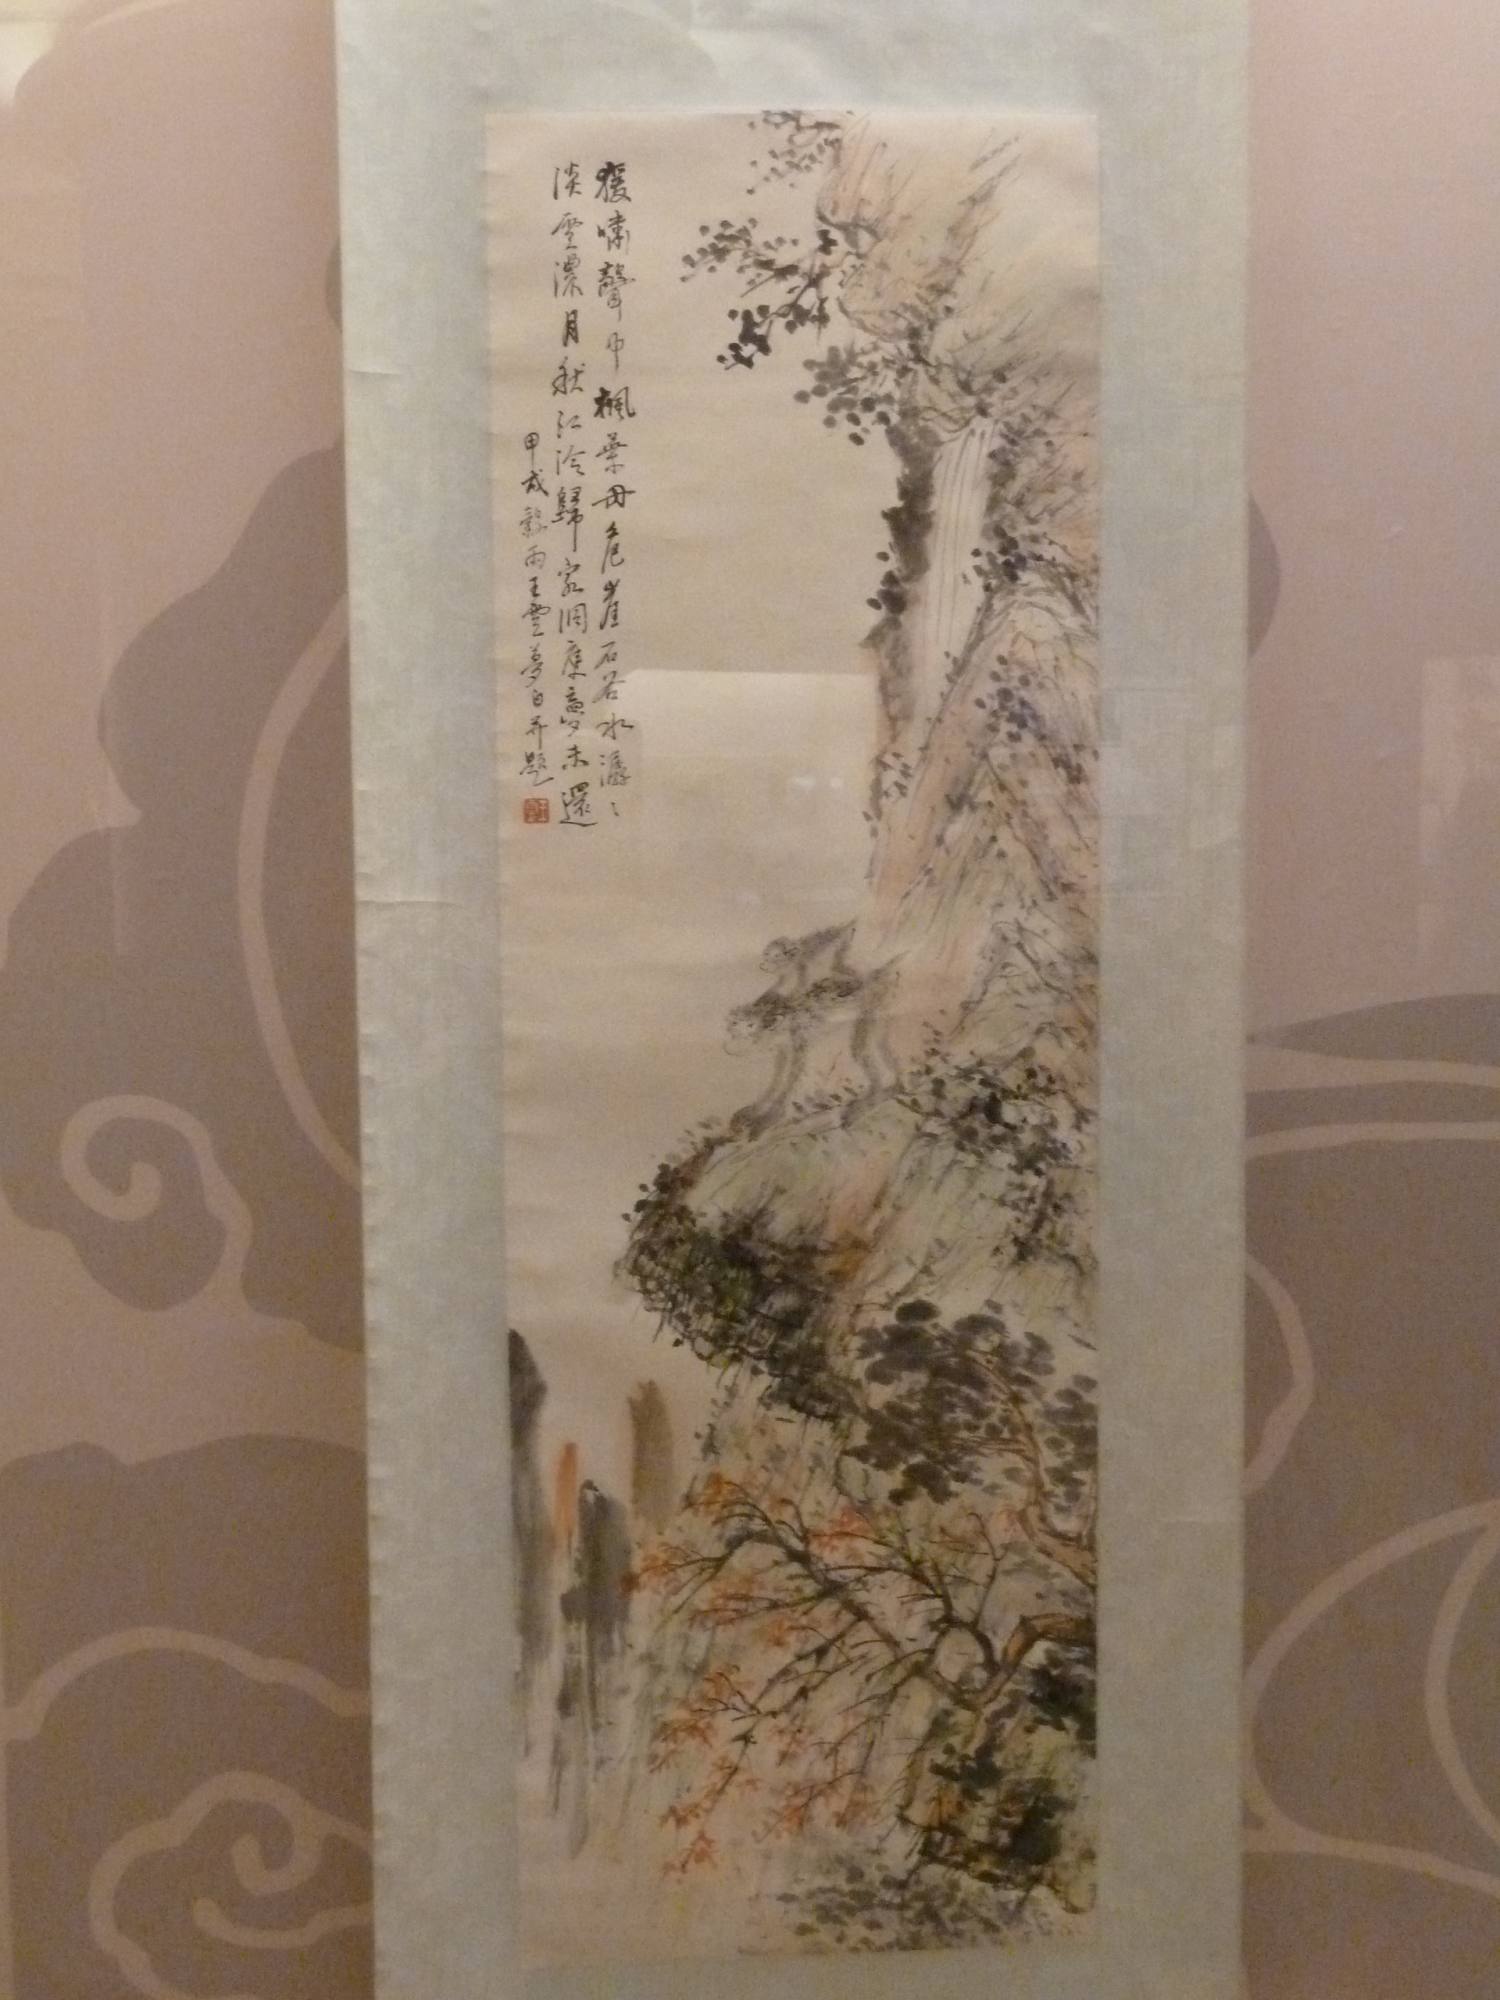 猨嘯聲中楓葉丹危崖石谷水潺〻
淡雲濃月秋江冷歸家洞應夢未還
甲戌穀雨王雲夢白并題